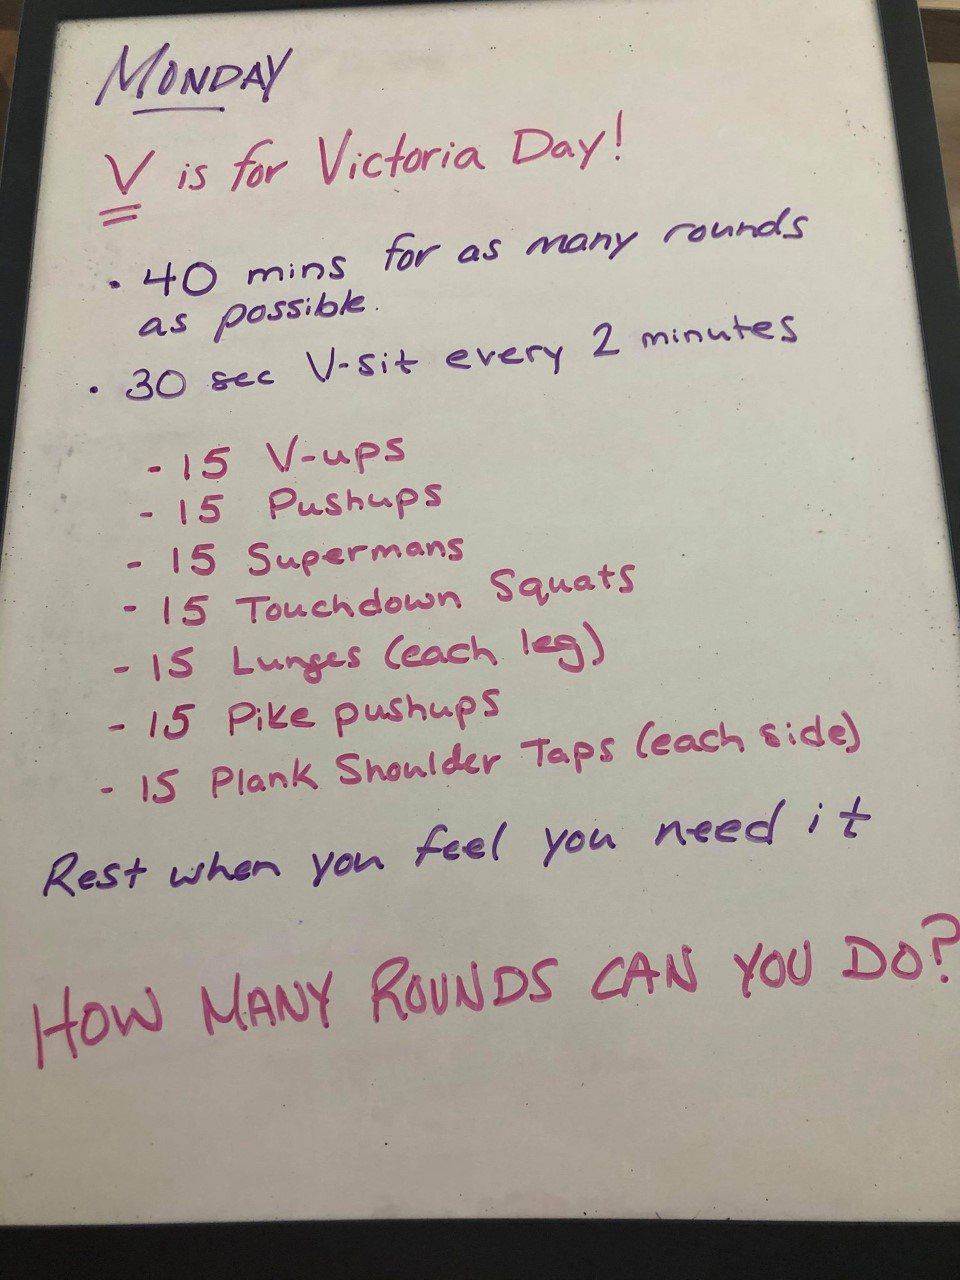 MONDAY
V is for Victoria Day!
• 40 mins for as many rounds
as possible.
• 30 sec V-sit every 2 minutes
- 15 V-ups
- 15 Pushups
- 15 Supermans
- 15 Touchdown Squats
- 15 Lunges (each leg)
- 15 Pike pushups
- 15 Plank Shoulder Taps (each side)
Rest when you feel you need it
HOW MANY ROUNDS CAN YOU DO?